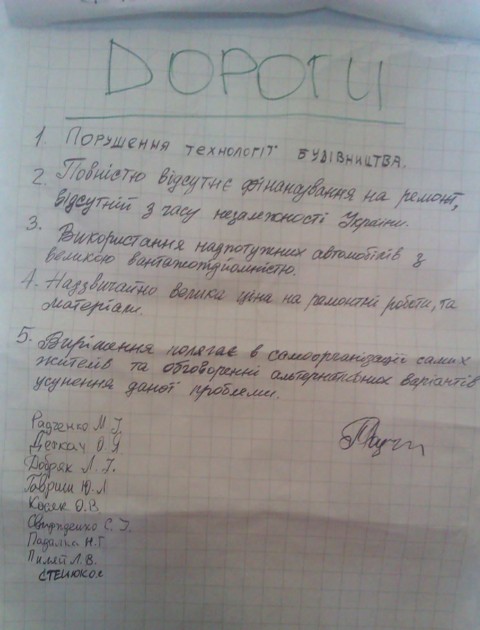 ДОРОГИ
1. ПОРУШЕННЯ ТЕХНОЛОГІЇ БУДІВНИЦТВА.
2. Повністю відсутнє фінансування на ремонт,
відсутній з часу незалежності України.
3. Використання надпотужних автомобілів з
великою вантажопідйомністю.
4. Надзвичайно велика ціна на ремонтні роботи, та
матеріали.
5. Вирішення полягає в самоорганізації самих
жителів та обговоренні альтернативних варіантів
усунення даної проблеми.
Радченко М. І.
О. Я.
Добряк Л. І.
Гавриш Ю. Л
Косяк О. В.
С. І.
Падалка Н. Г.
Пиляй Л. В.